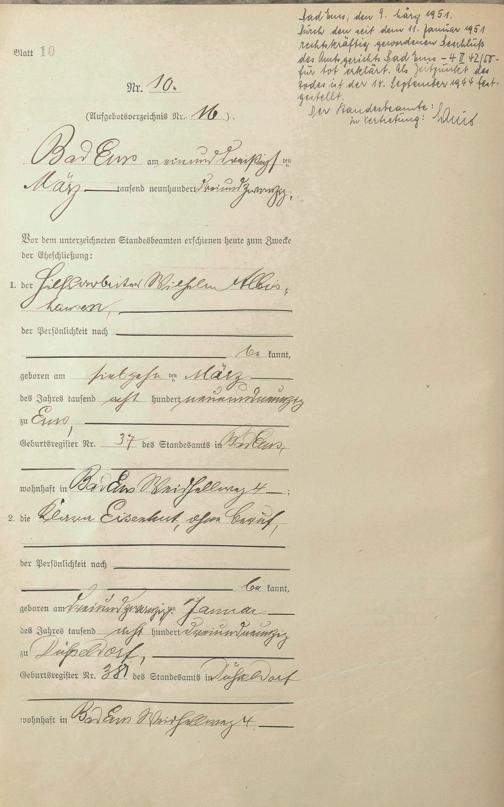 Blatt 10
Bad Ems, den 9. März 1951.
Durch den seit dem 11. Januar 1951
rechtskräftig gewordenen Beschluß
des Amtsgerichts Bad Ems – 4 II 42/50 –
für tot erklärt. Als Zeitpunkt des
Todes ist der 18. September 1944 fest-
gestellt.
Der Standesbeamte:
In Vertretung:
Nr. 10.
(Aufgebotsverzeichnis Nr. 16).
Bad Ems am einunddreißigsten
März tausend neunhundert dreiundzwanzig.
Vor dem unterzeichneten Standesbeamten erschienen heute zum Zwecke
der Eheschließung:
1. der Hilfsarbeiter Wilhelm Albis-
hausen,
der Persönlichkeit nach
be kannt,
geboren am siebzehnten März
des Jahres tausend acht hundert neunundneunzig
zu Ems,
Geburtsregister Nr. 37 des Standesamts in Bad Ems,
wohnhaft in Bad Ems Weidhellweg 4 ;
2. die Klara Eisenhut, ohne Beruf,
der Persönlichkeit nach
be kannt,
geboren am dreiundzwanzigst. Januar
des Jahres tausend acht hundert dreiundneunzig
zu Düsseldorf,
Geburtsregister Nr. 381 des Standesamts in Düsseldorf
wohnhaft in Bad Ems Weidhellweg 4.